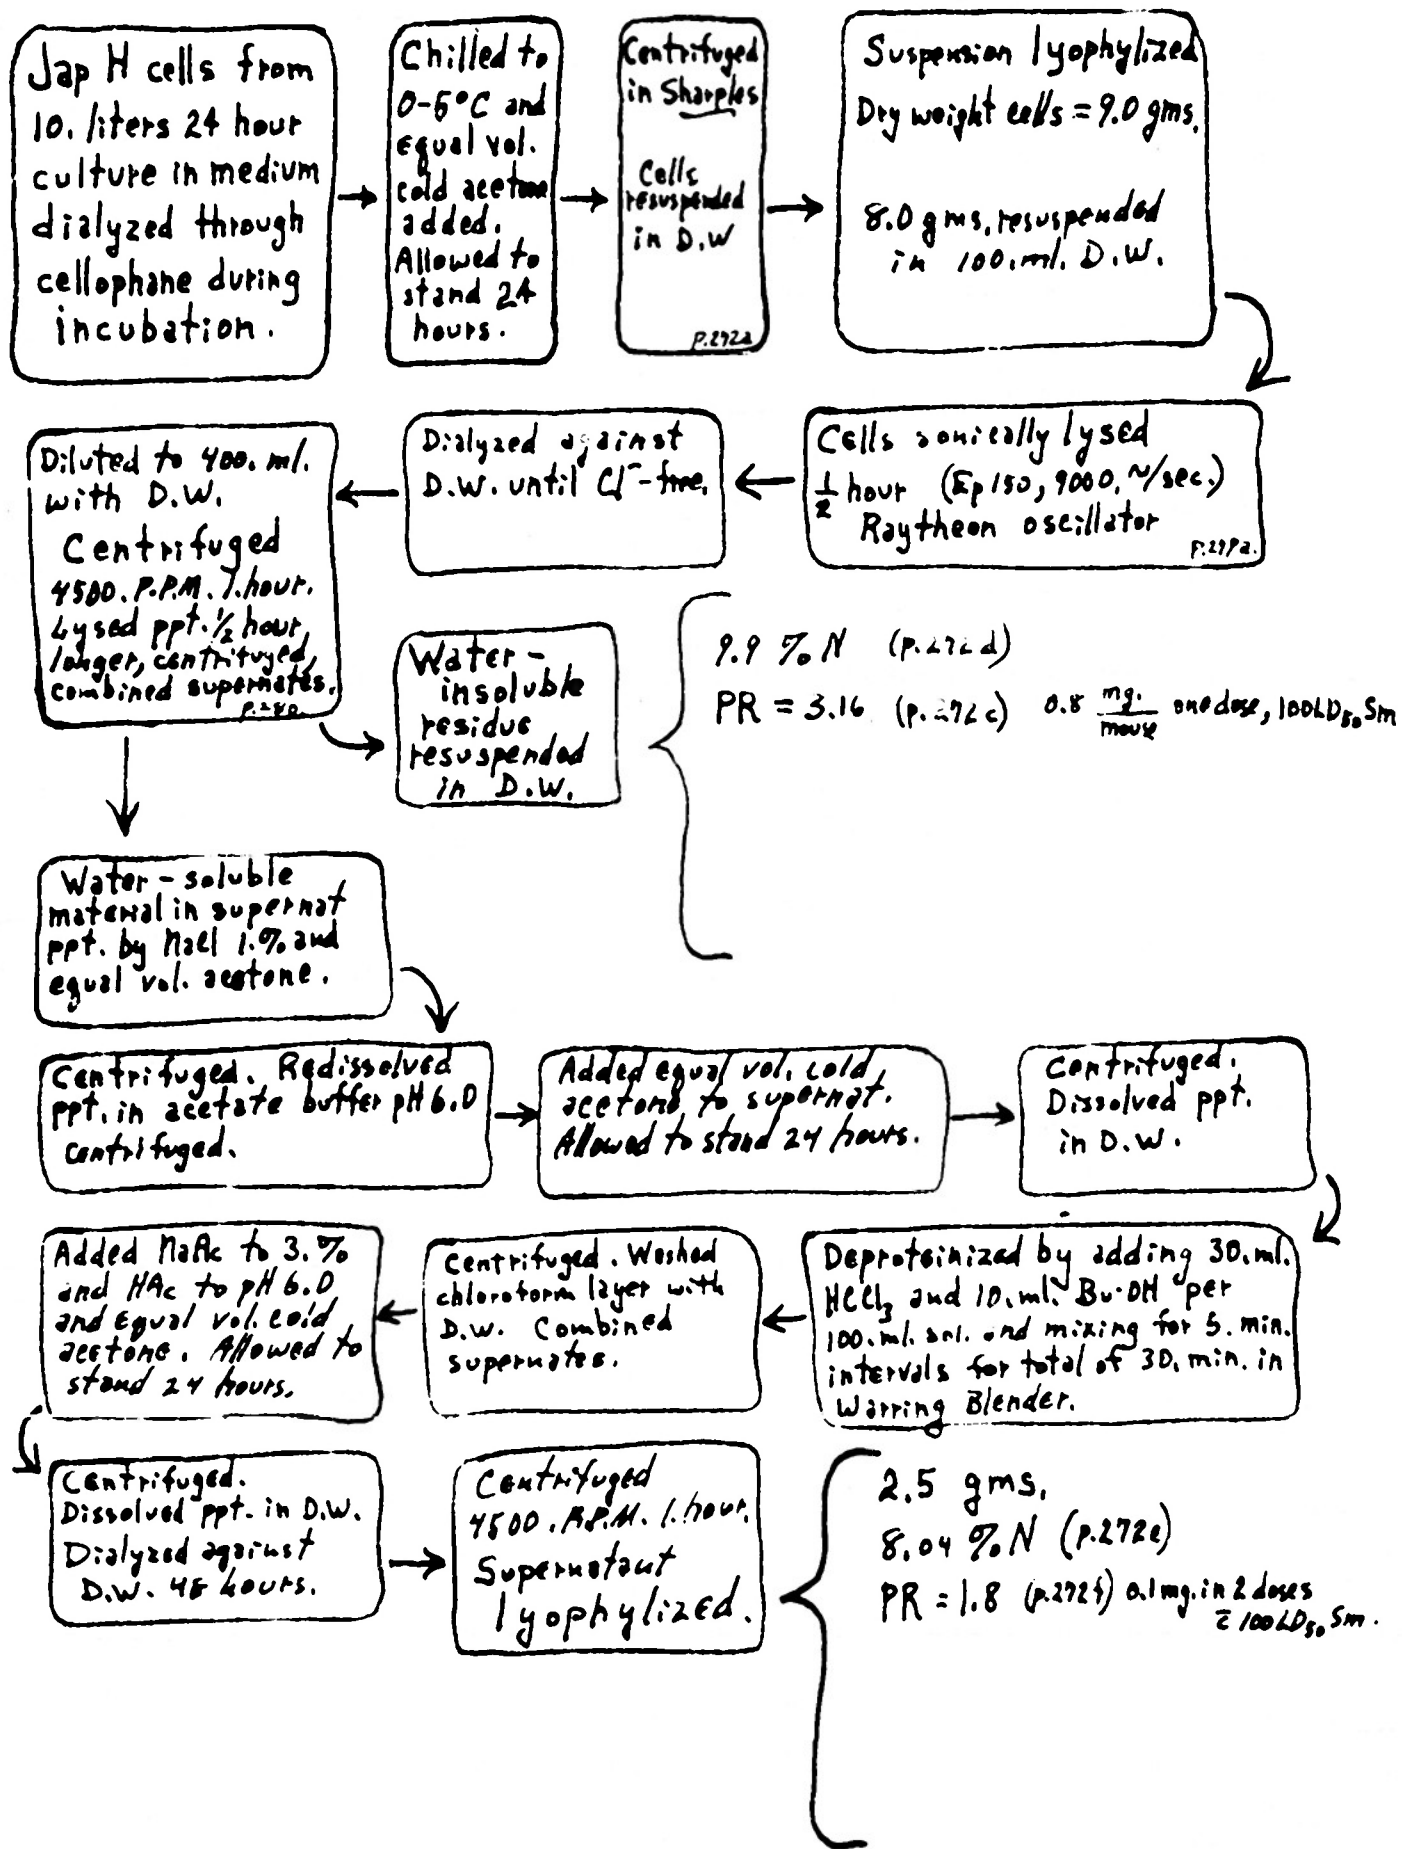 Jap H cells from
10. liters 24 hour
culture in medium
dialyzed through
cellophane during
incubation.
Chilled to
0-5°C and
equal vol.
cold acetone
added.
Allowed to
stand 24
hours.
Centrifuged
in Sharples
Cells
resuspended
in D.W
p.272a
Suspension lyophylized
Dry weight cells = 9.0 gms.
8.0 gms. resuspended
in 100. ml. D.W.
Cells sonically lysed
1/2 hour (Ep 150, 9000. ~/sec.)
Raytheon oscillator
Dialyzed against
D.W. until Cl⁻-free.
Diluted to 400. ml.
with D.W.
Centrifuged
4500. R.P.M. 1. hour.
Lysed ppt. 1/2 hour
longer, centrifuged,
combined supernates.
Water-
insoluble
residue
resuspended
in D.W.
9.9 % N (p.272d)
PR = 3.16 (p.272c) 0.8 mg./mouse one dose, 100LD₅₀ Sm
Water-soluble
material in supernat
ppt. by NaCl 1.% and
equal vol. acetone.
Centrifuged. Redissolved
ppt. in acetate buffer pH 6.0
centrifuged.
Added equal vol. cold
acetone to supernat.
Allowed to stand 24 hours.
Centrifuged.
Dissolved ppt.
in D.W.
Deproteinized by adding 30. ml.
HCCl₃ and 10. ml. Bu·OH per
100. ml. sol. and mixing for 5. min.
intervals for total of 30. min. in
Warring Blender.
Centrifuged. Washed
chloroform layer with
D.W. Combined
supernates.
Added NaAc to 3.%
and HAc to pH 6.0
and equal vol. cold
acetone. Allowed to
stand 24 hours.
Centrifuged.
Dissolved ppt. in D.W.
Dialyzed against
D.W. 48 hours.
Centrifuged
4500. R.P.M. 1. hour.
Supernatant
lyophylized.
2.5 gms.
8.04 % N (p.272e)
PR = 1.8 (p.272f) 0.1 mg. in 2 doses
c̄ 100LD₅₀ Sm.